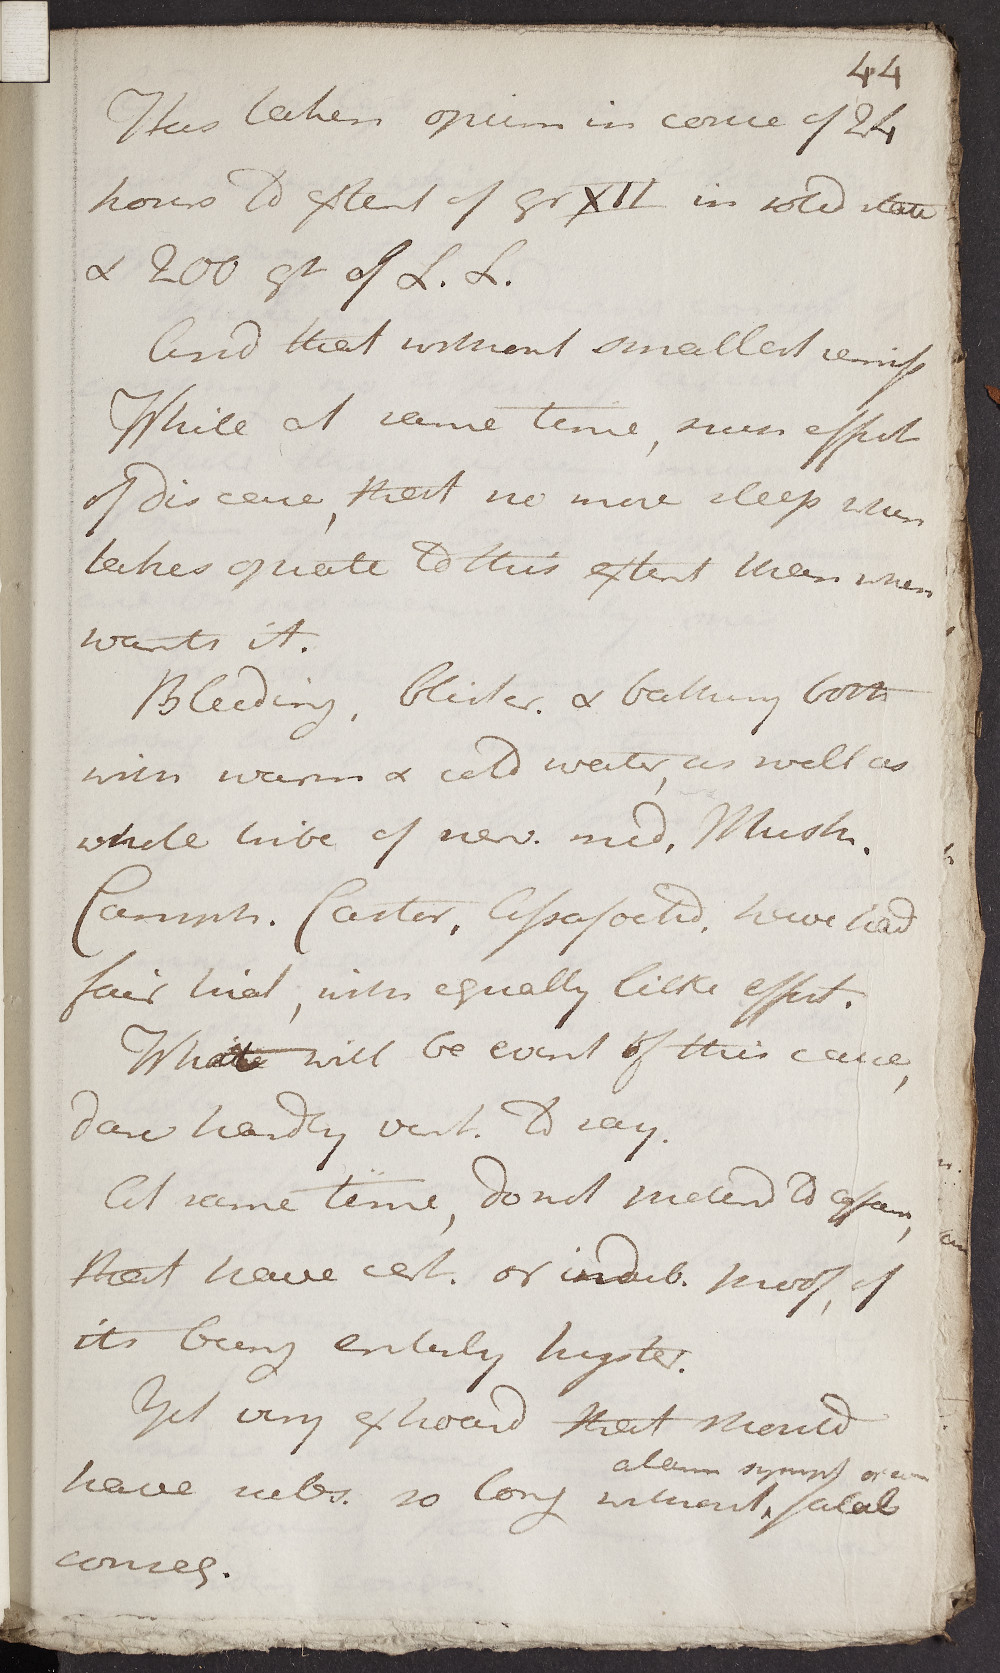 44
Has taken opium in course of 24
hours to extent of gr XII in solid state
& 200 gt of L. L.
And that without smallest remiss
While at same time, such effect
of disease, that no more sleep when
takes opiate to this extent than when
wants it.
Bleeding, blister. & bathing both
with warm & cold water, as well as
whole tribe of nerv. med, Musk.
Camph. Castor, Assafoetid. have had
fair trial, with equally little effect.
What will be event of this case,
dare hardly vent. to say.
At same time, do not pretend to affirm,
that have cert. or indub. proof, of
its being entirely hyster.
Yet very extraord that should
alarm symps or even
have subs. so long without, fatal
conseq.